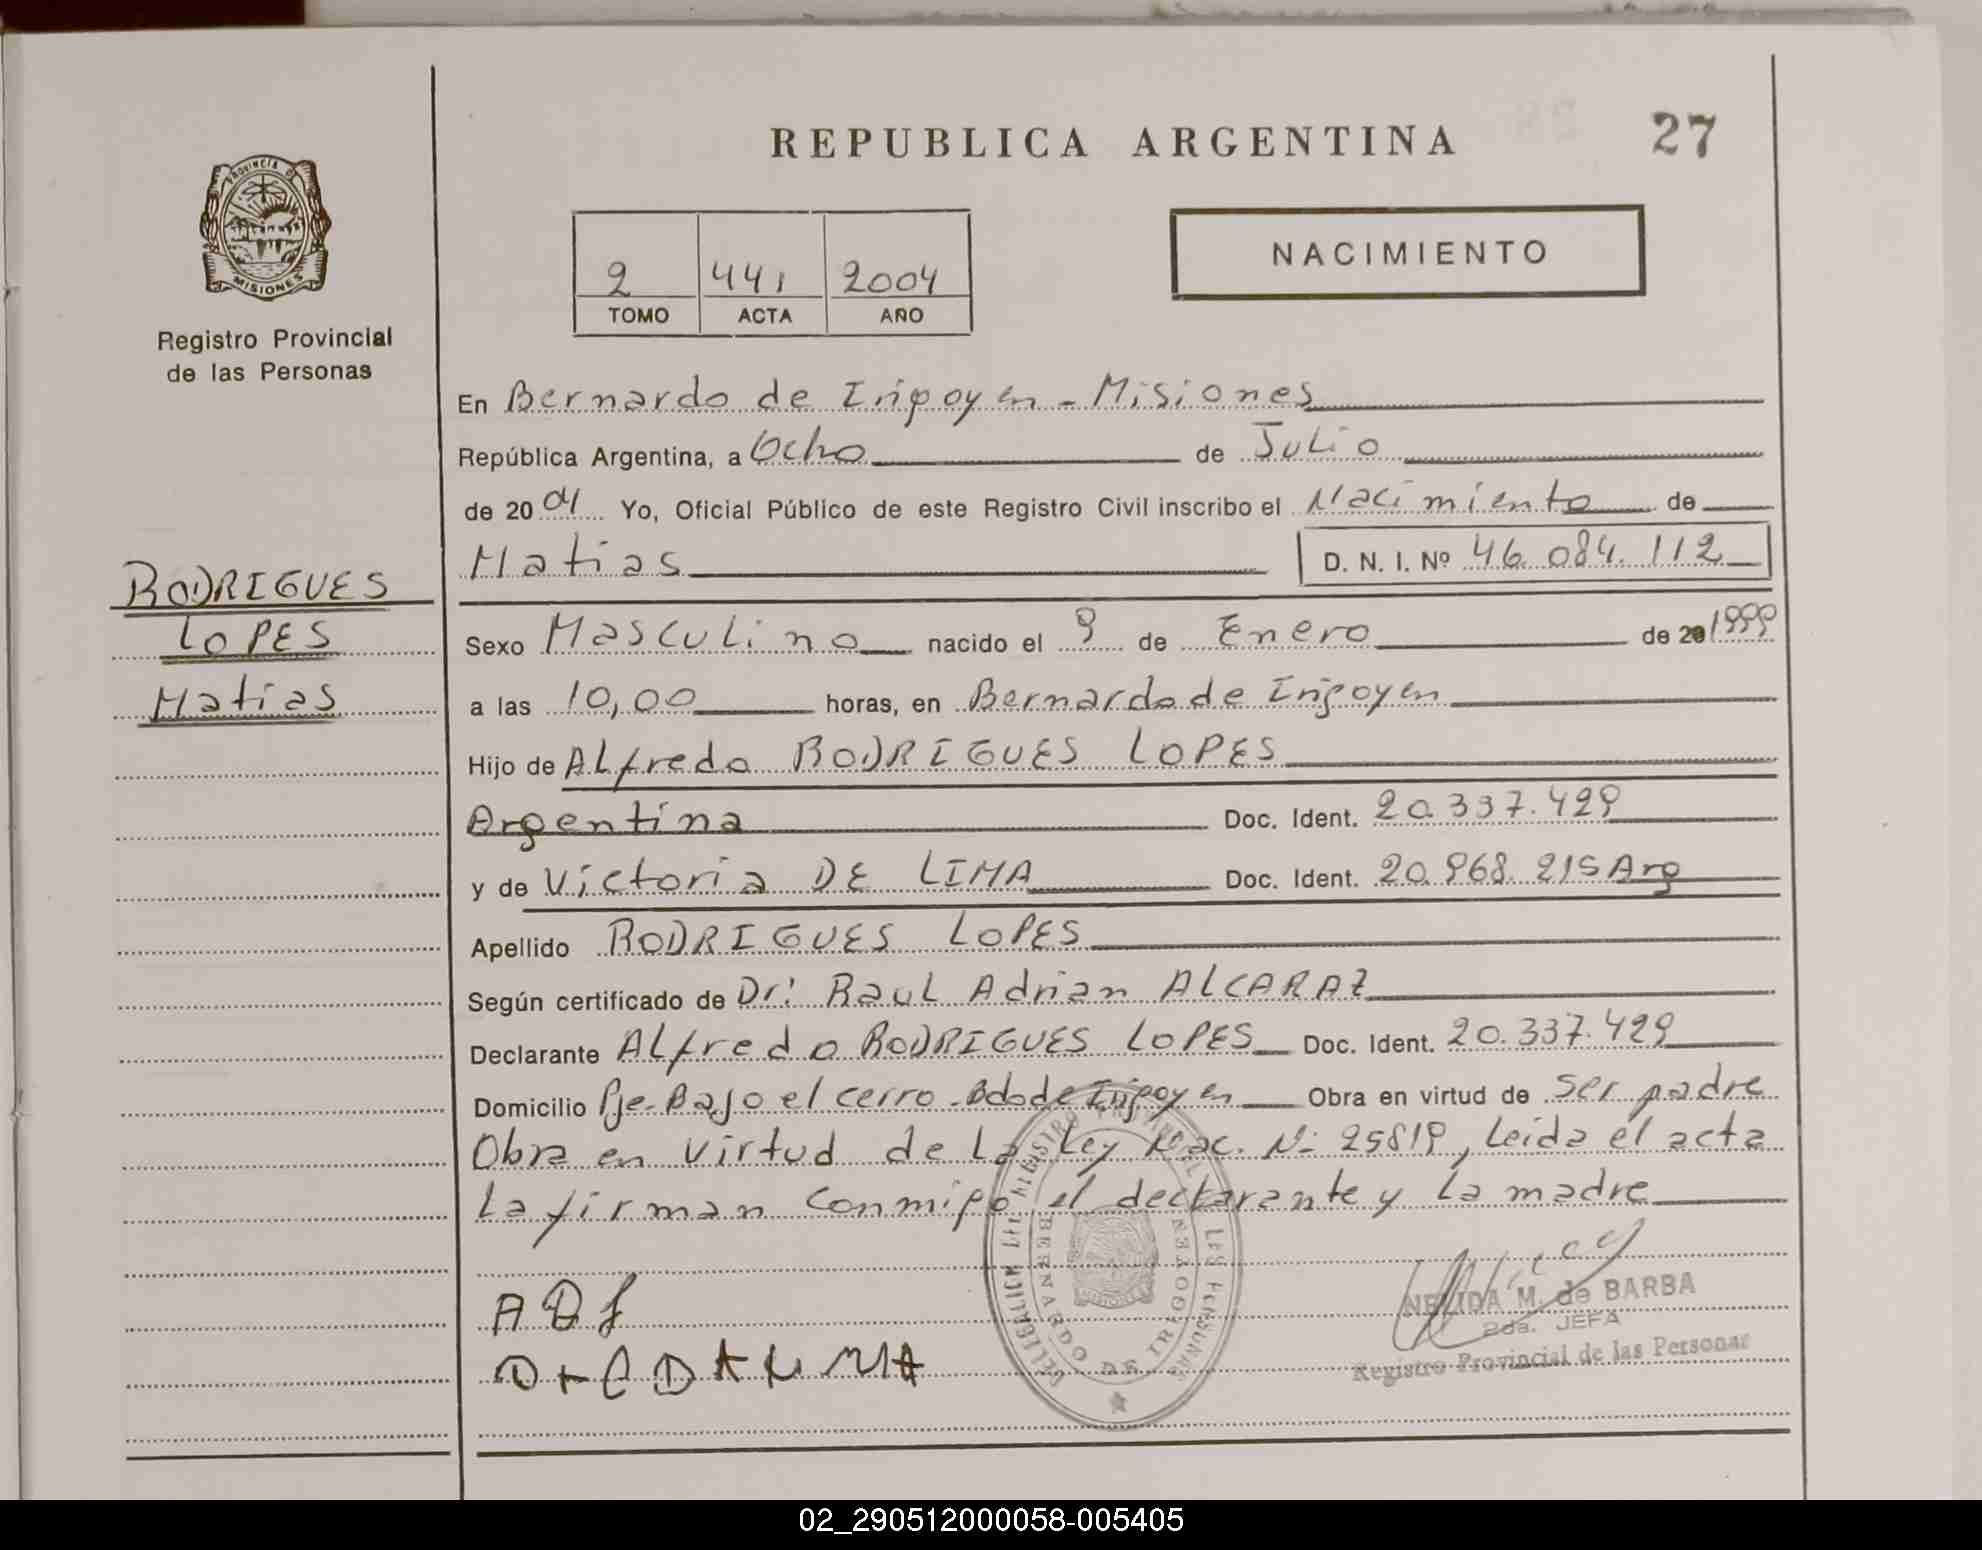 REPUBLICA ARGENTINA
27
PROVINCIA DE
MISIONES
Registro Provincial
de las Personas
2 441 2004
TOMO ACTA AÑO
NACIMIENTO
En Bernardo de Irigoyen - Misiones
República Argentina, a Ocho de Julio
de 2004 Yo, Oficial Público de este Registro Civil inscribo el Nacimiento de
Matias D. N. I. Nº 46.084.112
RODRIGUES
LOPES
Matias
Sexo Masculino nacido el 9 de Enero de 20 1999
a las 10,00 horas, en Bernardo de Irigoyen
Hijo de Alfredo RODRIGUES LOPES
Argentina Doc. Ident. 20.337.429
y de Victoria DE LIMA Doc. Ident. 20.968.215 Arg
Apellido RODRIGUES LOPES
Según certificado de Dr: Raul Adrian ALCARAZ
Declarante Alfredo RODRIGUES LOPES Doc. Ident. 20.337.429
Domicilio Pje. Bajo el cerro - Bdo de Irigoyen Obra en virtud de ser padre
Obra en virtud de la Ley Nac. Nº 25819, leida el acta
la firman conmigo el declarante y la madre
BERNARDO DE IRIGOYEN
NELIDA M. de BARBA
2da. JEFA
Registro Provincial de las Personas
02_290512000058-005405